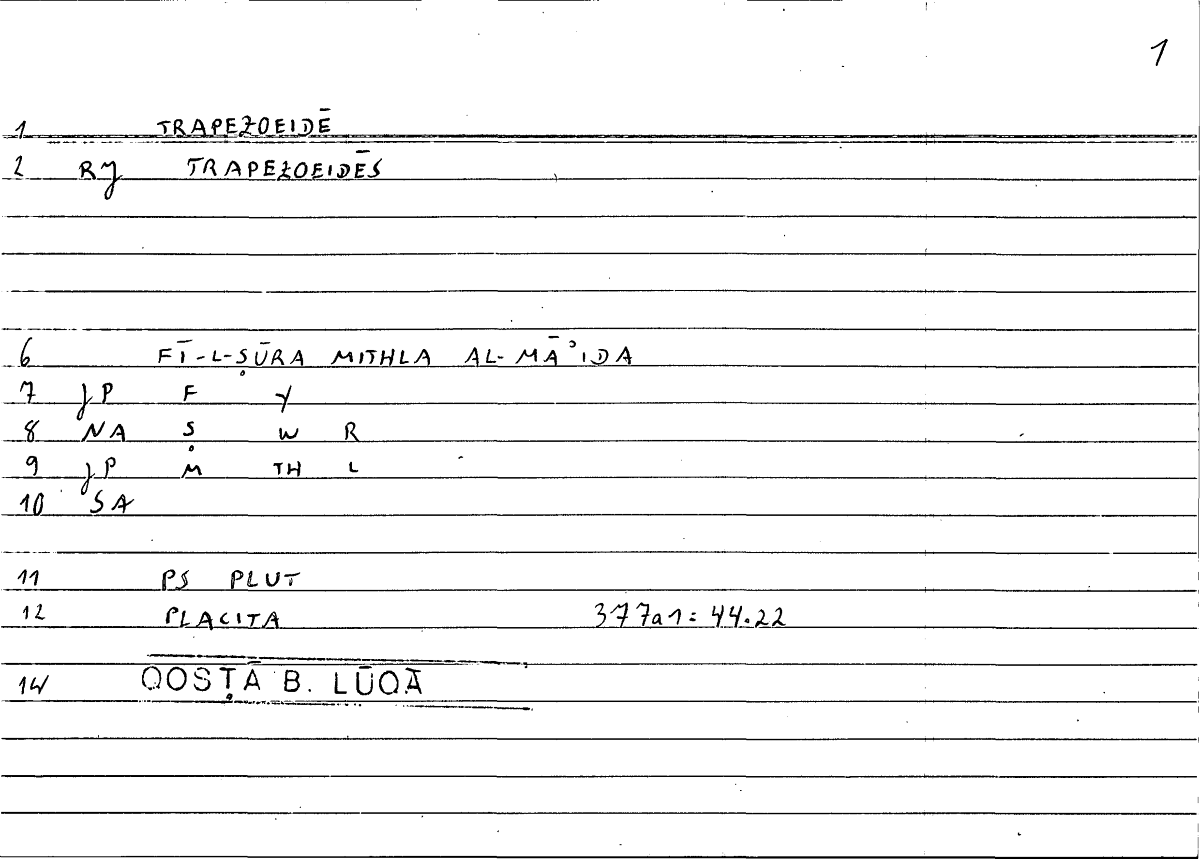 1
1 TRAPEZOEIDĒ
2 RY TRAPEZOEIDĒS
6 FĪ-L-ṢŪRA MITHLA AL-MĀʾIDA
7 JP F Y
8 NA Ṣ W R
9 JP M TH L
10 SA
11 PS PLUT
12 PLACITA 377a1 = 44.22
14 QOSṬĀ B. LŪQĀ